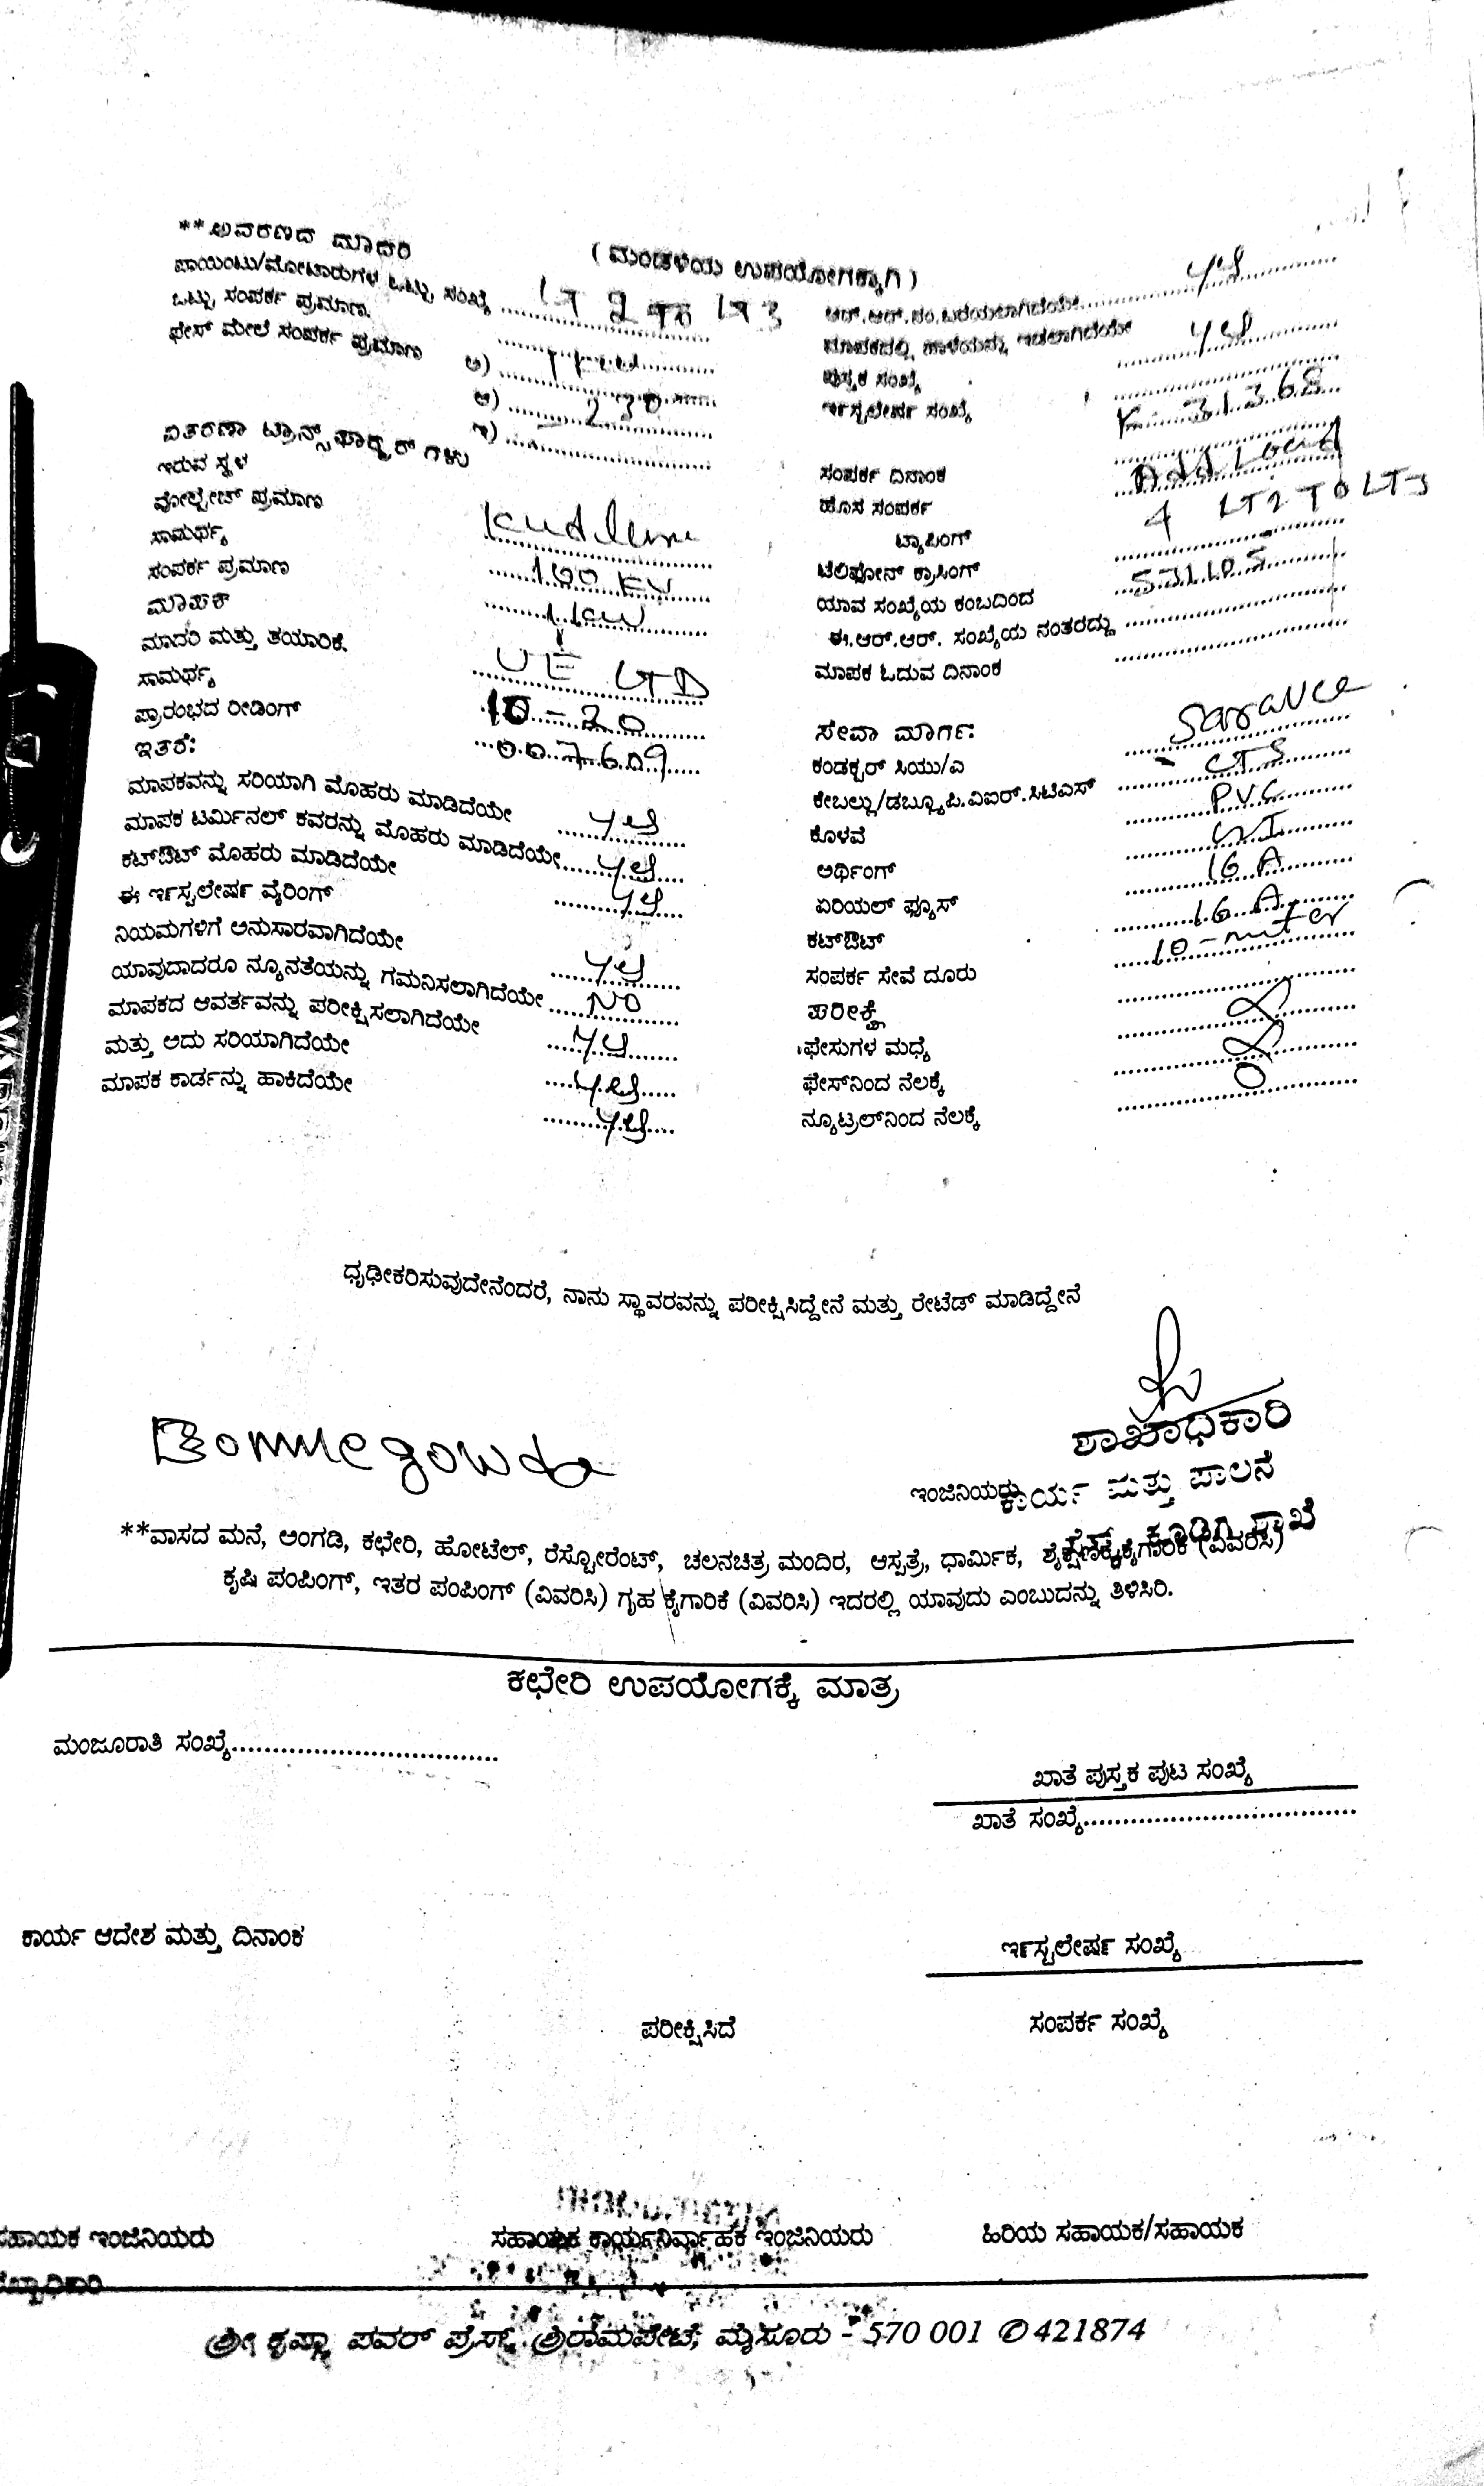 ( ಮಂಡಳಿಯ ಉಪಯೋಗಕ್ಕಾಗಿ )
**ಆವರಣದ ಮಾದರಿ
ಪಾಯಿಂಟು/ಮೋಟಾರುಗಳ ಒಟ್ಟು ಸಂಖ್ಯೆ LT 2 TO LT 3
ಒಟ್ಟು ಸಂಪರ್ಕ ಪ್ರಮಾಣ
ಫೇಸ್ ಮೇಲೆ ಸಂಪರ್ಕ ಪ್ರಮಾಣ ಅ)
ಆ) 230
ಇ)
ವಿತರಣಾ ಟ್ರಾನ್ಸ್‌ಫಾರ್ಮರ್‌ಗಳು
ಇರುವ ಸ್ಥಳ
ವೋಲ್ಟೇಜ್ ಪ್ರಮಾಣ
ಸಾಮರ್ಥ್ಯ
ಸಂಪರ್ಕ ಪ್ರಮಾಣ 100 KV
ಮಾಪಕ 1 KW
ಮಾದರಿ ಮತ್ತು ತಯಾರಿಕೆ
ಸಾಮರ್ಥ್ಯ UE LTD
ಪ್ರಾರಂಭದ ರೀಡಿಂಗ್ 10-20
ಇತರೆ: 007609
ಮಾಪಕವನ್ನು ಸರಿಯಾಗಿ ಮೊಹರು ಮಾಡಿದೆಯೇ yes
ಮಾಪಕ ಟರ್ಮಿನಲ್ ಕವರನ್ನು ಮೊಹರು ಮಾಡಿದೆಯೇ yes
ಕಟ್‌ಔಟ್ ಮೊಹರು ಮಾಡಿದೆಯೇ yes
ಈ ಇನ್ಸ್ಟಲೇಷನ್ ವೈರಿಂಗ್
ನಿಯಮಗಳಿಗೆ ಅನುಸಾರವಾಗಿದೆಯೇ yes
ಯಾವುದಾದರೂ ನ್ಯೂನತೆಯನ್ನು ಗಮನಿಸಲಾಗಿದೆಯೇ NO
ಮಾಪಕದ ಆವರ್ತವನ್ನು ಪರೀಕ್ಷಿಸಲಾಗಿದೆಯೇ yes
ಮತ್ತು ಅದು ಸರಿಯಾಗಿದೆಯೇ yes
ಮಾಪಕ ಕಾರ್ಡನ್ನು ಹಾಕಿದೆಯೇ yes
ಆರ್.ಆರ್.ನಂ.ಬರೆಯಲಾಗಿದೆಯೇ yes
ಮಾಪಕದಲ್ಲಿ ಹಾಳೆಯನ್ನು ಇಡಲಾಗಿದೆಯೇ yes
ಪುಸ್ತಕ ಸಂಖ್ಯೆ
ಇನ್ಸ್ಟಲೇಷನ್ ಸಂಖ್ಯೆ K 31368
ಸಂಪರ್ಕ ದಿನಾಂಕ Add Load
ಹೊಸ ಸಂಪರ್ಕ LT2 TO LT3
ಟ್ಯಾಪಿಂಗ್
ಟೆಲಿಫೋನ್ ಕ್ರಾಸಿಂಗ್
ಯಾವ ಸಂಖ್ಯೆಯ ಕಂಬದಿಂದ
ಈ.ಆರ್.ಆರ್. ಸಂಖ್ಯೆಯ ನಂತರದ್ದು
ಮಾಪಕ ಓದುವ ದಿನಾಂಕ
ಸೇವಾ ಮಾರ್ಗ:
ಕಂಡಕ್ಟರ್ ಸಿಯು/ಎ
ಕೇಬಲ್ಲು/ಡಬ್ಲ್ಯೂಪಿ.ವಿಐಆರ್.ಸಿಟಿಎಸ್ CTS
ಕೊಳವೆ PVC
ಅರ್ಥಿಂಗ್
ಏರಿಯಲ್ ಫ್ಯೂಸ್ 16 A
ಕಟ್‌ಔಟ್ 16 A
ಸಂಪರ್ಕ ಸೇವೆ ದೂರು 10-miter
ಪರೀಕ್ಷೆ
ಫೇಸುಗಳ ಮಧ್ಯೆ
ಫೇಸ್‌ನಿಂದ ನೆಲಕ್ಕೆ
ನ್ಯೂಟ್ರಲ್‌ನಿಂದ ನೆಲಕ್ಕೆ 0
ಧೃಢೀಕರಿಸುವುದೇನೆಂದರೆ, ನಾನು ಸ್ಥಾವರವನ್ನು ಪರೀಕ್ಷಿಸಿದ್ದೇನೆ ಮತ್ತು ರೇಟೆಡ್ ಮಾಡಿದ್ದೇನೆ
Bommegowda
ಶಾಖಾಧಿಕಾರಿ
ಇಂಜಿನಿಯರು ಕಾರ್ಯ ಮತ್ತು ಪಾಲನೆ
ಕೂಡಿಗಿ ಶಾಖೆ
**ವಾಸದ ಮನೆ, ಅಂಗಡಿ, ಕಛೇರಿ, ಹೋಟೆಲ್, ರೆಸ್ಟೋರೆಂಟ್, ಚಲನಚಿತ್ರ ಮಂದಿರ, ಆಸ್ಪತ್ರೆ, ಧಾರ್ಮಿಕ, ಶೈಕ್ಷಣಿಕ, ಕೈಗಾರಿಕೆ (ವಿವರಿಸಿ)
ಕೃಷಿ ಪಂಪಿಂಗ್, ಇತರ ಪಂಪಿಂಗ್ (ವಿವರಿಸಿ) ಗೃಹ ಕೈಗಾರಿಕೆ (ವಿವರಿಸಿ) ಇದರಲ್ಲಿ ಯಾವುದು ಎಂಬುದನ್ನು ತಿಳಿಸಿರಿ.
ಕಛೇರಿ ಉಪಯೋಗಕ್ಕೆ ಮಾತ್ರ
ಮಂಜೂರಾತಿ ಸಂಖ್ಯೆ
ಖಾತೆ ಪುಸ್ತಕ ಪುಟ ಸಂಖ್ಯೆ
ಖಾತೆ ಸಂಖ್ಯೆ
ಕಾರ್ಯ ಆದೇಶ ಮತ್ತು ದಿನಾಂಕ
ಇನ್ಸ್ಟಲೇಷನ್ ಸಂಖ್ಯೆ
ಪರೀಕ್ಷಿಸಿದೆ
ಸಂಪರ್ಕ ಸಂಖ್ಯೆ
ಸಹಾಯಕ ಇಂಜಿನಿಯರು
ಸಹಾಯಕ ಕಾರ್ಯನಿರ್ವಾಹಕ ಇಂಜಿನಿಯರು
ಹಿರಿಯ ಸಹಾಯಕ/ಸಹಾಯಕ
ಶ್ರೀ ಕೃಷ್ಣಾ ಪವರ್ ಪ್ರೆಸ್, ಶ್ರೀರಾಮಪೇಟೆ, ಮೈಸೂರು - 570 001 ✆ 421874